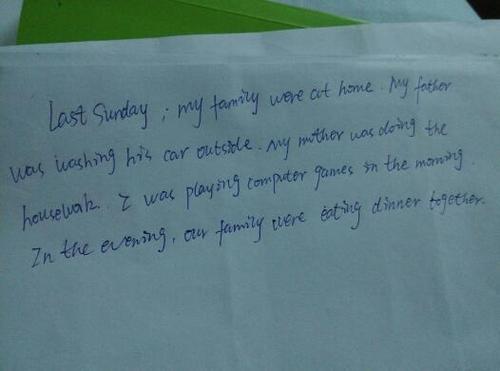 Last Sunday, my family were at home. My father
was washing his car outside. My mother was doing the
housework. I was playing computer games in the morning.
In the evening, our family were eating dinner together.